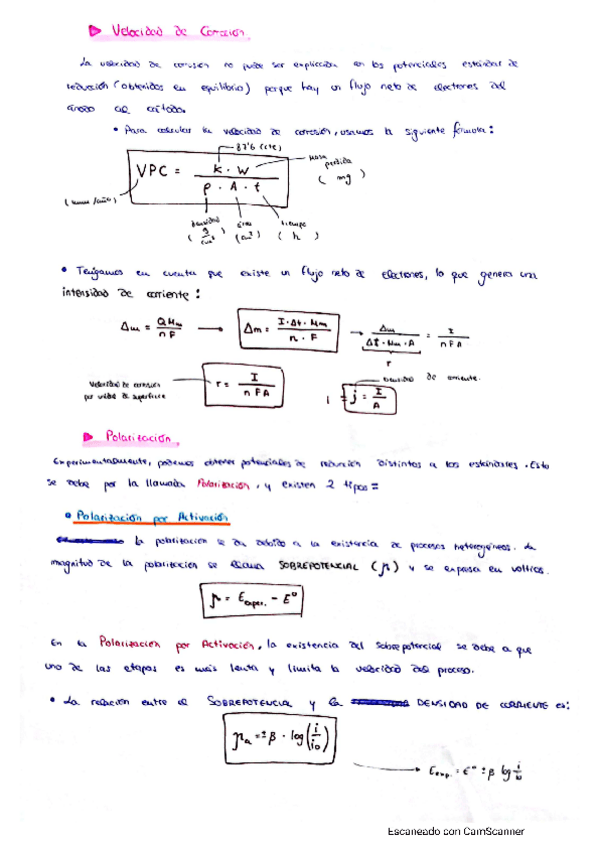 ▶ Velocidad de Corrosión.
La velocidad de corrosión no puede ser explicada en los potenciales estándar de
reducción (obtenidos en equilibrio) porque hay un flujo neto de electrones del
ánodo al cátodo.
• Para calcular la velocidad de corrosión, usamos la siguiente fórmula:
87'6 (cte)
masa perdida (mg)
VPC = K · W / ρ · A · t
(mm/año)
densidad (g/cm³) área (cm²) tiempo (h)
• Tengamos en cuenta que existe un flujo neto de electrones, lo que genera una
intensidad de corriente:
Δm = Q Mm / n F → Δm = I · Δt · Mm / n · F → Δm / Δt · Mm · A = I / n F A
r
Velocidad de corrosión
por unidad de superficie
r = I / n F A
densidad de corriente.
i = j = I / A
▶ Polarización.
Experimentalmente, podemos obtener potenciales de reducción distintos a los estándares. Esto
se debe por la llamada Polarización, y existen 2 tipos=
• Polarización por Activación
La polarización se da debido a la existencia de procesos heterogéneos. La
magnitud de la polarización se llama SOBREPOTENCIAL (η) y se expresa en voltios.
η = Eexper. - E°
En la Polarización por Activación, la existencia del sobrepotencial se debe a que
uno de las etapas es más lenta y limita la velocidad del proceso.
• La relación entre el SOBREPOTENCIAL y la DENSIDAD DE CORRIENTE es:
ηa = ± β · log (i/i0)
→ Eexp. = E° ± β log i/i0
Escaneado con CamScanner